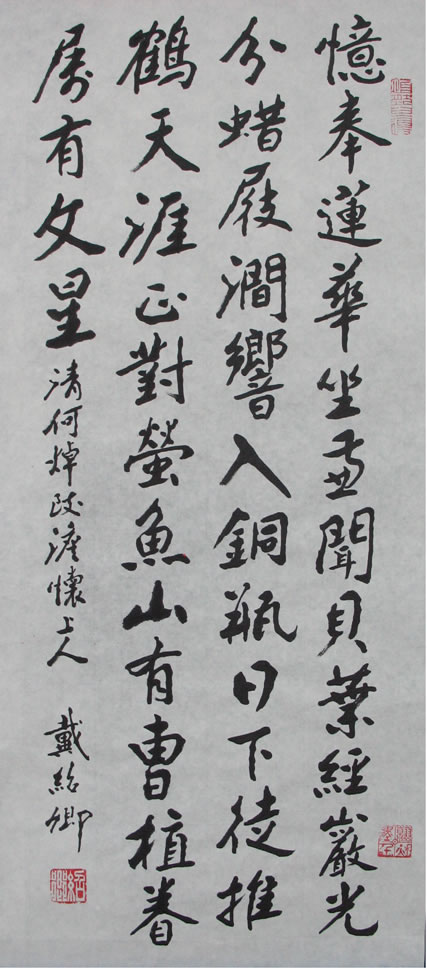 憶奉蓮華坐兼聞貝葉經巖光
分蜡屐澗響入銅瓶日下徒推
鶴天涯正對螢魚山有曹植眷
属有文星 清何焯 懷上人 戴紹卿